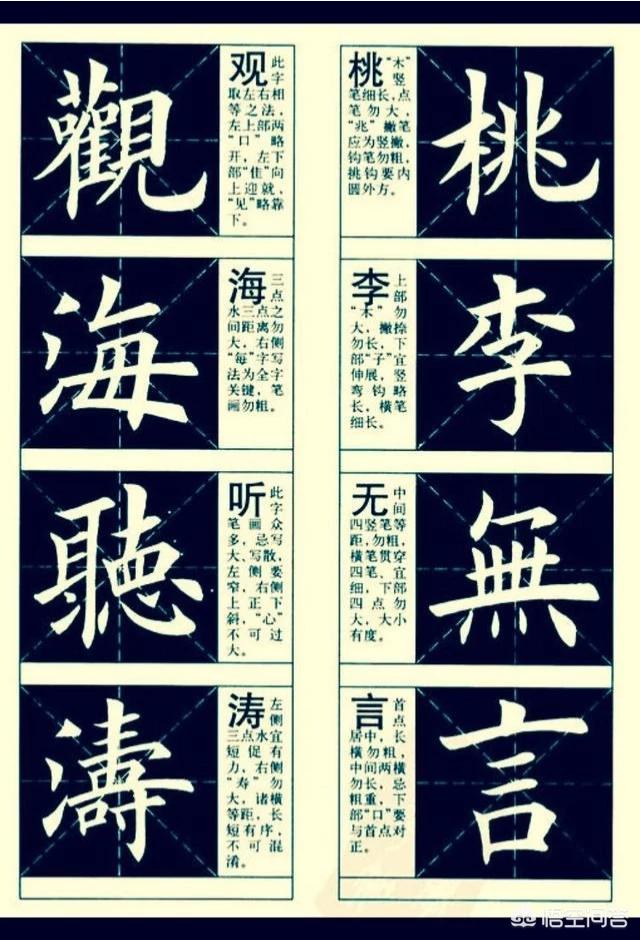 桃
桃“木”竖
笔细长,点
笔勿大,
“兆”撇笔
应为竖撇,
钩笔勿粗,
挑钩要内
圆外方。
李
李上部
“木”勿
大,撇捺
勿长,下
部“子”宜
伸展,竖
弯钩略
长,横笔
细长。
無
无中间
四竖笔等
距,勿粗,
横笔贯穿
四笔、宜
细,下部
四点勿
大,大小
有度。
言
言首点
居中,长
横勿粗,
中间两横
勿长,忌
粗重,下
部“口”要
与首点对
正。
觀
观此字
取左右相
等之法,
左上部两
“口”略
开,左下
部“隹”向
上迎就,
“见”略靠
下。
海
海三点
水三点之
间距离勿
大,右侧
“每”字写
法为全字
关键,笔
画勿粗。
聽
听此字
笔画众
多,忌写
大、写散,
左侧要
窄,右侧
上正下
斜,“心”
不可过
大。
濤
涛左侧
三点水宜
短促有
力,右侧
“寿”勿
大,诸横
等距,长
短有序,
不可混
淆。
悟空问答